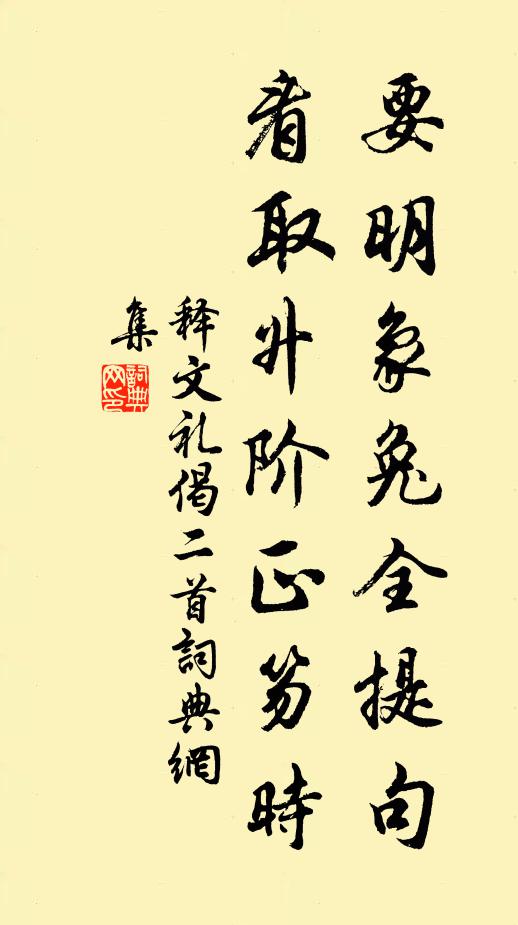 要明象兔全提句
看取升阶正笏時
释文礼偈二首詞典網
集
詞典
网印